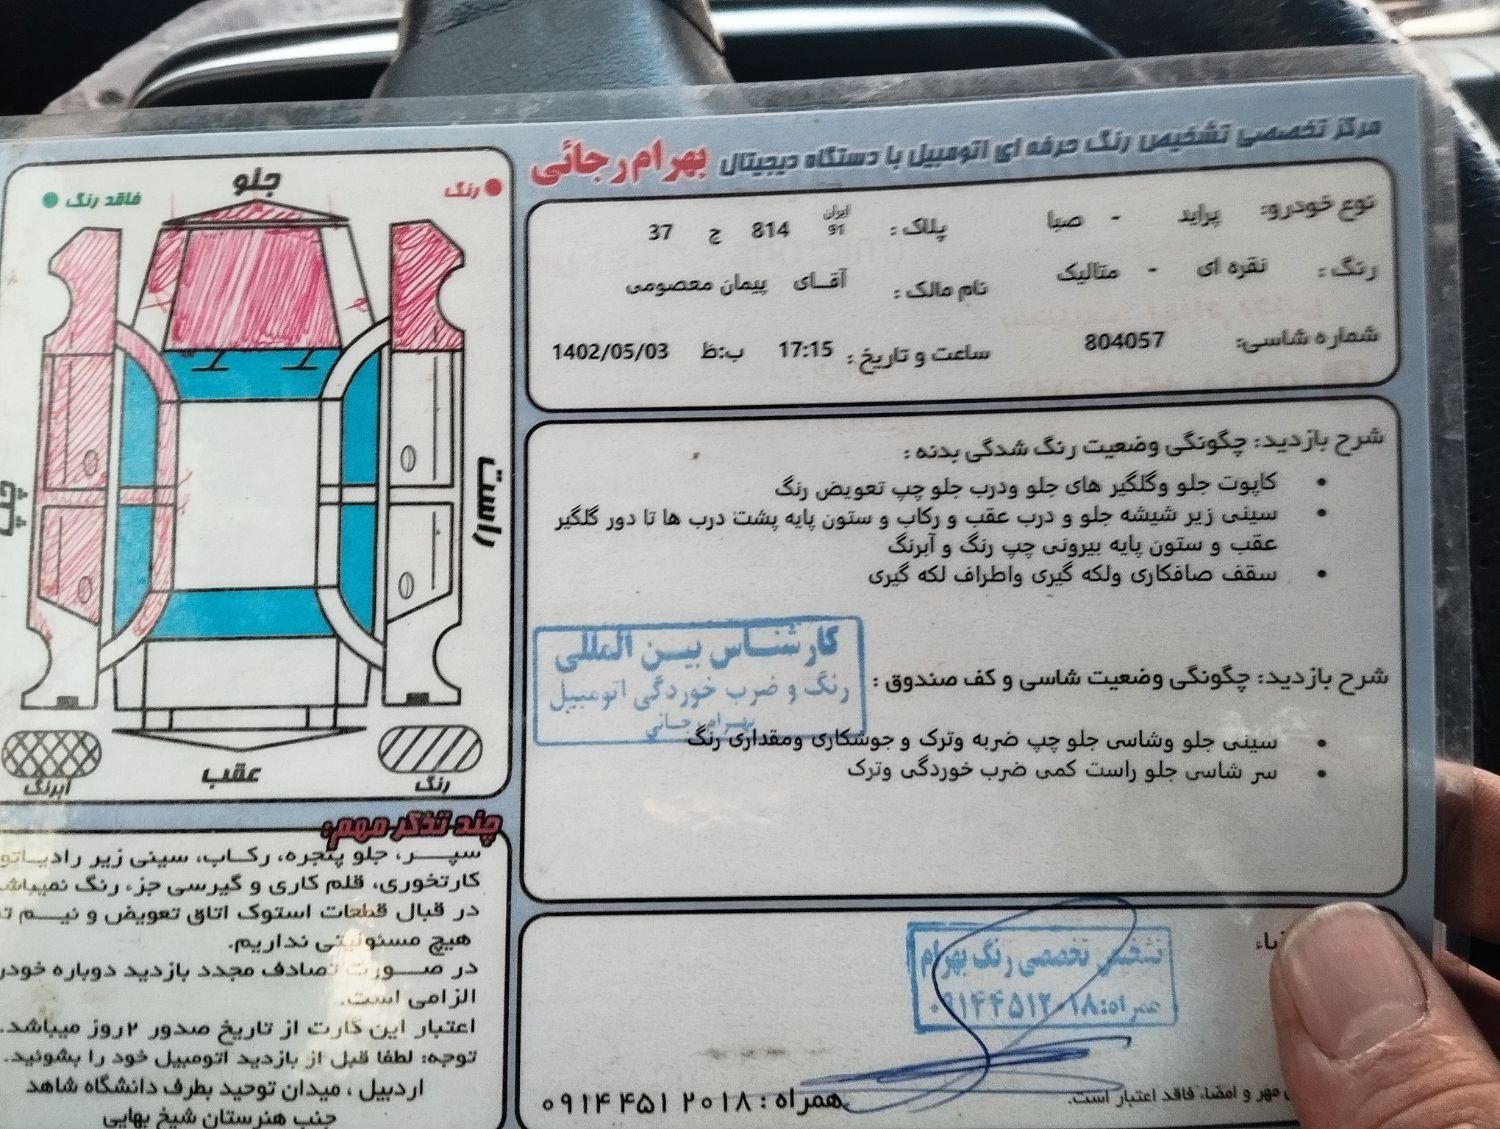 مرکز تخصصی تشخیص رنگ حرفه ای اتومبیل با دستگاه دیجیتال بهرام رجائی
نوع خودرو: پراید - صبا پلاک: ایران 91 814 ج 37
رنگ: نقره ای - متالیک نام مالک: آقای پیمان معصومی
شماره شاسی: 804057 ساعت و تاریخ: 17:15 ب:ظ 1402/05/03
شرح بازدید: چگونگی وضعیت رنگ شدگی بدنه:
• کاپوت جلو وگلگیر های جلو ودرب جلو چپ تعویض رنگ
• سینی زیر شیشه جلو و درب عقب و رکاب و ستون پایه پشت درب ها تا دور گلگیر
عقب و ستون پایه بیرونی چپ رنگ و آبرنگ
• سقف صافکاری ولکه گیری واطراف لکه گیری
کارشناس بین المللی
رنگ و ضرب خوردگی اتومبیل
بهرام رجائی
شرح بازدید: چگونگی وضعیت شاسی و کف صندوق:
• سینی جلو وشاسی جلو چپ ضربه وترک و جوشکاری ومقداری رنگ
• سر شاسی جلو راست کمی ضرب خوردگی وترک
تشخیص تخصصی رنگ بهرام
همراه: ۰۹۱۴۴۵۱۲۰۱۸
مهر و امضاء فاقد اعتبار است.
همراه: ۰۹۱۴ ۴۵۱ ۲۰۱۸
رنگ
جلو
فاقد رنگ
راست
چپ
رنگ
عقب
آبرنگ
چند تذکر مهم:
سپر، جلو پنجره، رکاب، سینی زیر
کارتخوری، قلم کاری و گیرسی جزء رنگ
در قبال قطعات استوک اتاق تعویض و نیم
هیچ مسئولیتی نداریم.
در صورت تصادف مجدد بازدید دوباره
الزامی است.
اعتبار این کارت از تاریخ صدور ۲روز میباشد.
توجه: لطفا قبل از بازدید اتومبیل خود را بشوئید.
اردبیل، میدان توحید بطرف دانشگاه شاهد
جنب هنرستان شیخ بهایی